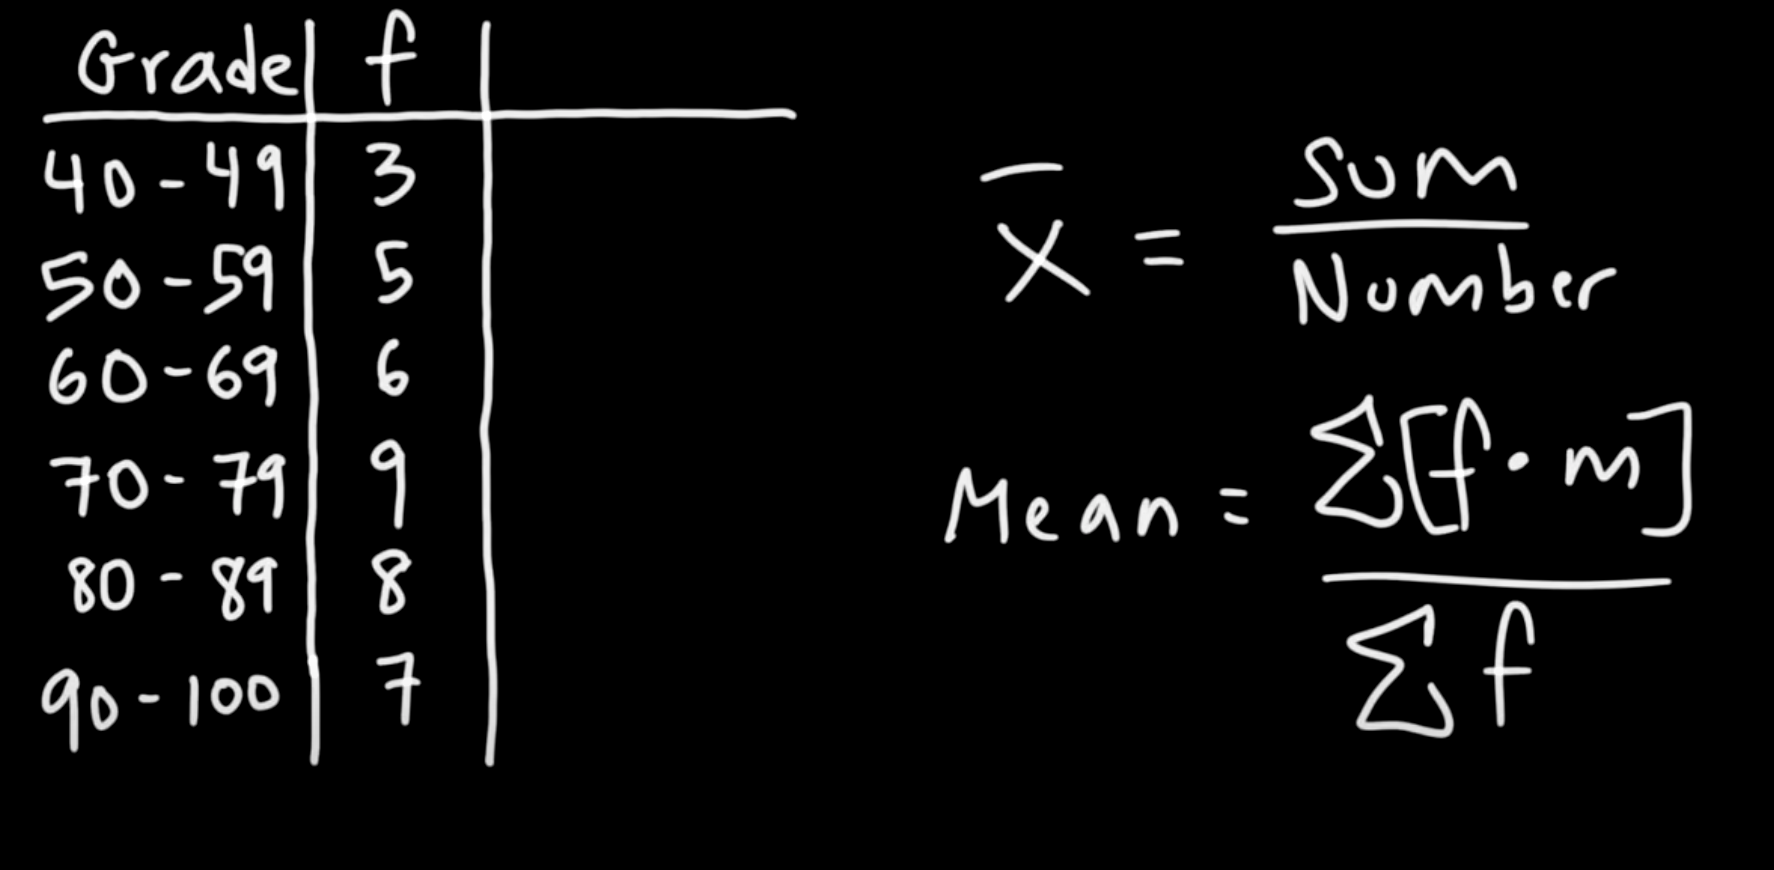 Grade f
40 - 49 3
50 - 59 5
60 - 69 6
70 - 79 9
80 - 89 8
90 - 100 7
x̄ = Sum / Number
Mean = Σ[f · m] / Σf